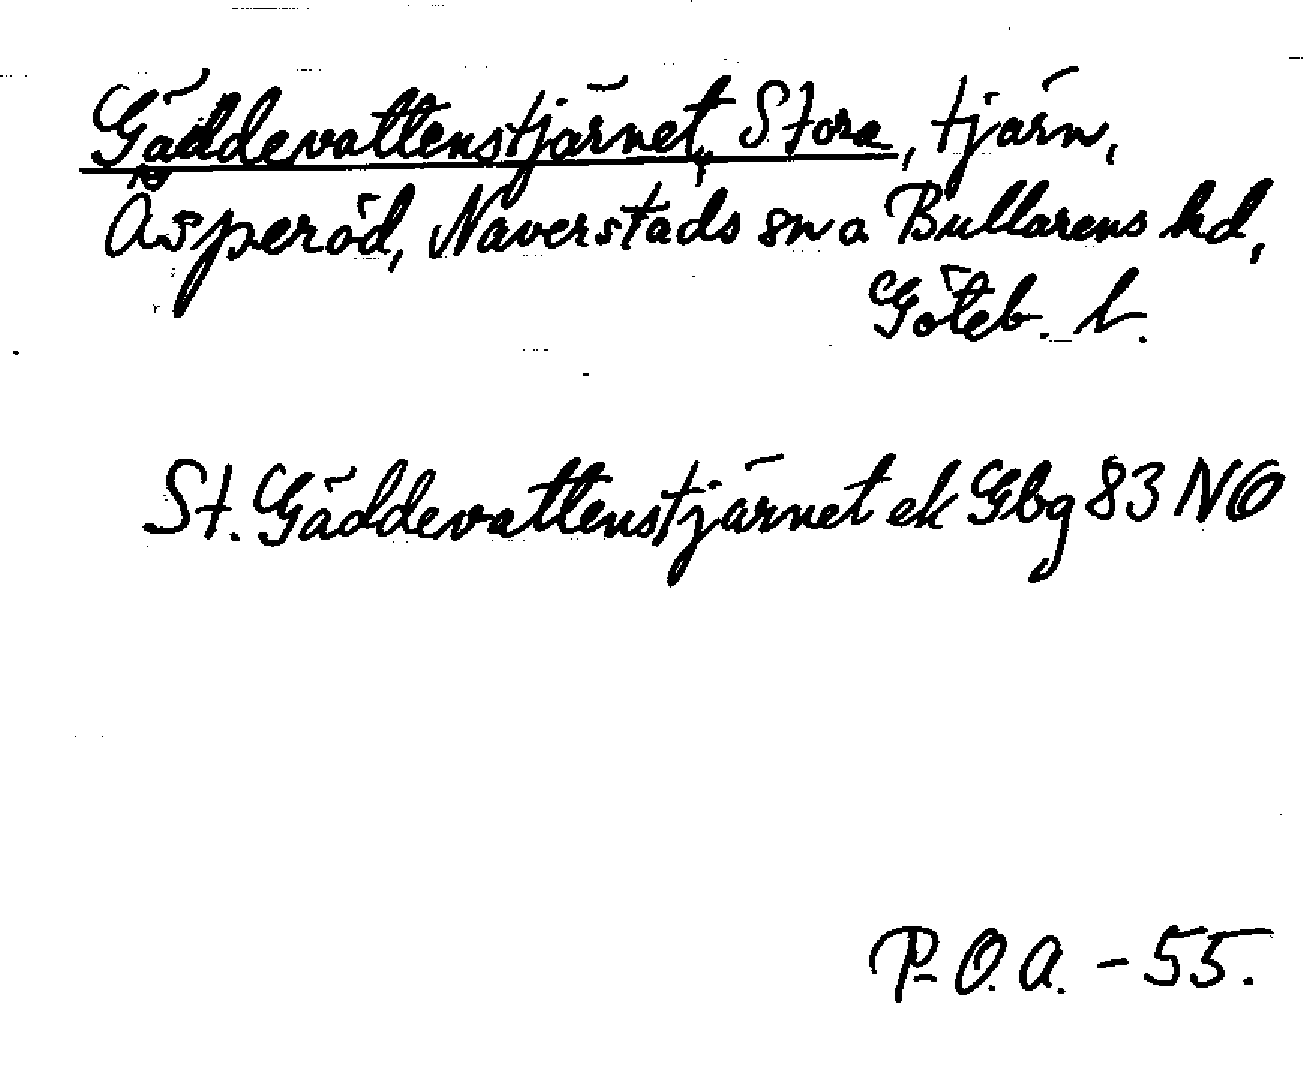 Gäddevattenstjärnet, Stora, tjärn,
Åsperöd, Naverstads sn a Bullarens hd,
Göteb. l.
St. Gäddevattenstjärnet ek Gbg 83 NO
P. O. A. - 55.